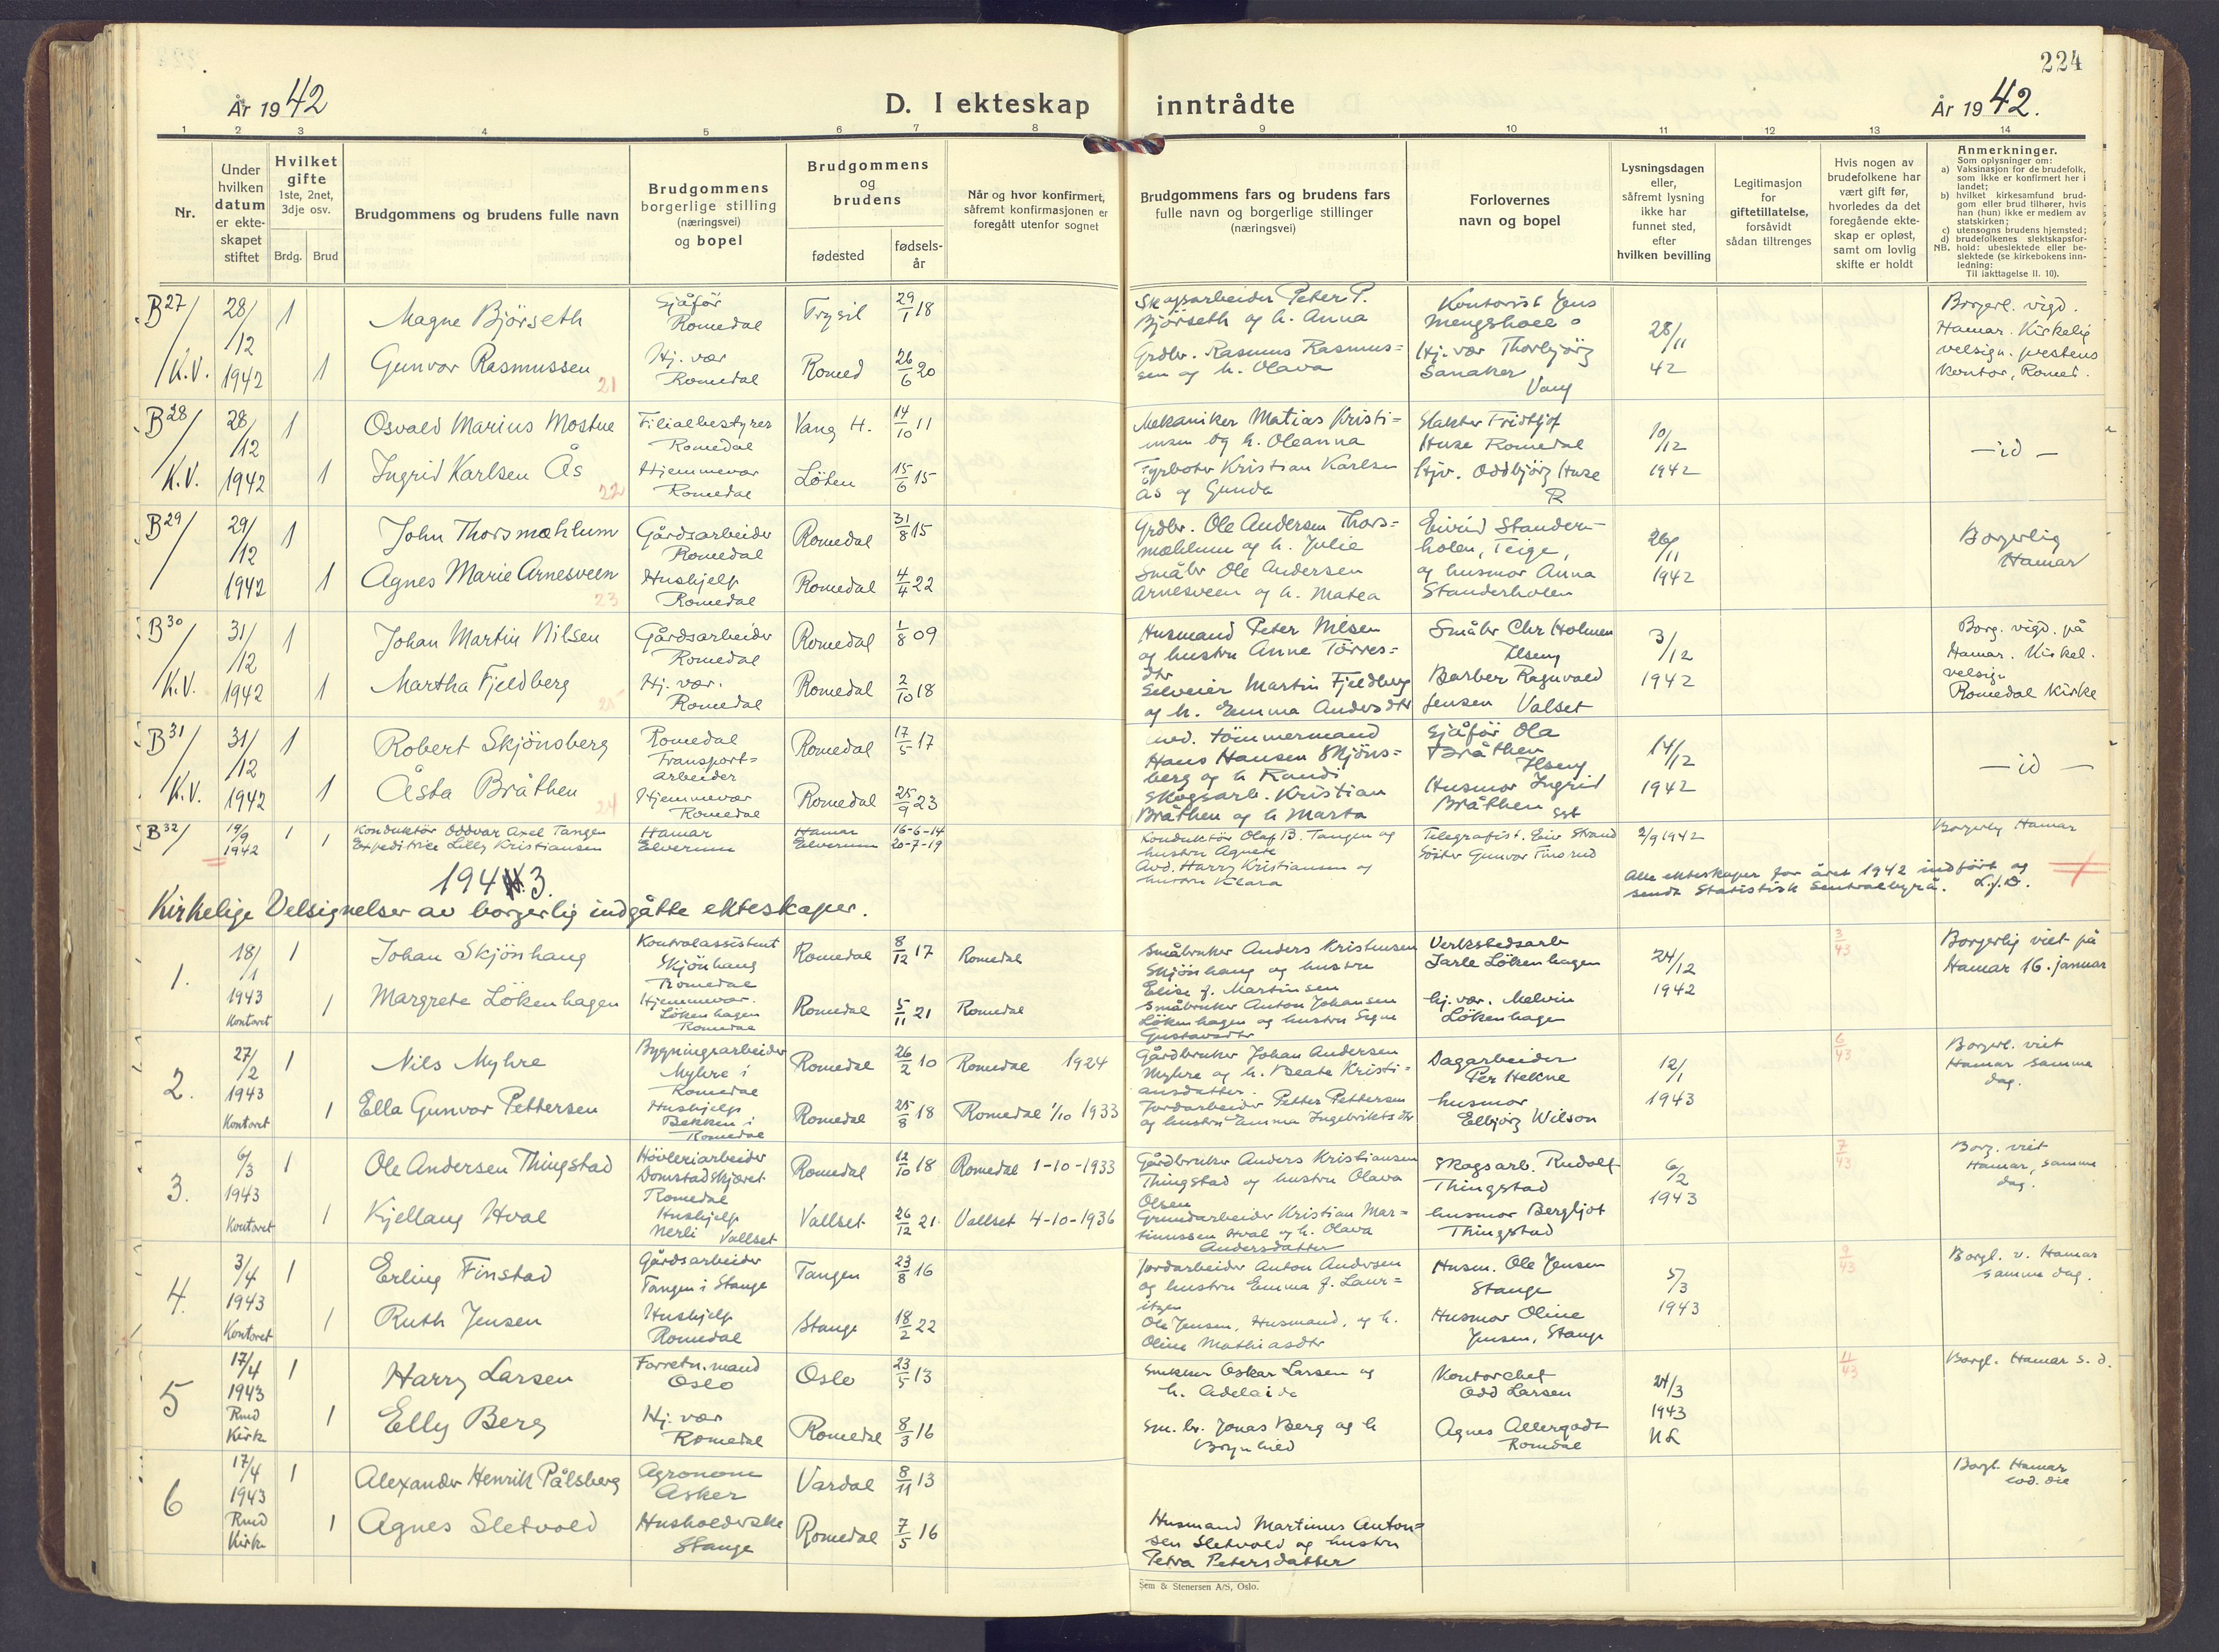 224
År 1942
D. I ekteskap inntrådte
År 1942.
1 2 3 4 5 6 7 8 9 10 11 12 13 14
Nr.
Under hvilken datum er ekteskapet stiftet
Hvilket gifte 1ste, 2net, 3dje osv.
Brdg. Brud
Brudgommens og brudens fulle navn
Brudgommens borgerlige stilling (næringsvei) og bopel
Brudgommens og brudens
fødested
fødselsår
Når og hvor konfirmert, såfremt konfirmasjonen er foregått utenfor sognet
Brudgommens fars og brudens fars fulle navn og borgerlige stillinger (næringsvei)
Forlovernes navn og bopel
Lysningsdagen eller, såfremt lysning ikke har funnet sted, efter hvilken bevilling
Legitimasjon for giftetillatelse, forsåvidt sådan tiltrenges
Hvis nogen av brudefolkene har vært gift før, hvorledes da det foregående ekteskap er opløst, samt om lovlig skifte er holdt
Anmerkninger.
Som oplysninger om:
a) Vaksinasjon for de brudefolk, som ikke er konfirmert her i landet;
b) hvilket kirkesamfund brudgom eller brud tilhører, hvis han (hun) ikke er medlem av statskirken;
c) utensogns brudens hjemsted;
d) brudefolkenes slektskapsforhold: ubeslektede eller beslektede (se kirkebokens innledning:
NB. Til iakttagelse II. 10).
B27/ K.V. 28/12 1942
1 Magne Bjørseth Sjåfør Romedal Trysil 29/1 18
Skogsarbeider Peter P. Bjørseth og h. Anna
Kontorist Jens Mengshoel
28/11 42
Borgerl. vigd. Hamar. Kirkelig velsign. prestens kontor, Romed.
1 Gunvor Rasmussen 21 Hj. vær Romedal Romed 26/6 20
Grdbr. Rasmus Rasmussen og h. Olava
Hj. vær Thorbjørg Sanaker Vang
B28/ K.V. 28/12 1942
1 Osvald Marius Mostue Filialbestyrer Romedal Vang H. 14/10 11
Mekaniker Matias Kristiansen og h. Oleanna
Slakter Fridtjof Huse Romedal
10/12 1942
— id —
1 Ingrid Karlsen Ås 22 Hjemmevær Romedal Löten 15/6 15
Fyrbøter Kristian Karlsen Ås og Gunda
Hjv. Oddbjørg Huse R
B29/ 29/12 1942
1 John Thorsmæhlum Gårdsarbeider Romedal Romedal 31/8 15
Grdbr. Ole Andersen Thorsmæhlum og h. Julie
Eivind Standerholen, Teige,
26/11 1942
Borgerlig Hamar
1 Agnes Marie Arnesveen 23 Hushjelp Romedal Romedal 4/4 22
Småbr Ole Andersen Arnesveen og h. Matea
og husmor Anna Standerholen
B30/ K.V. 31/12 1942
1 Johan Martin Nilsen Gårdsarbeider Romedal Romedal 1/8 09
Husmand Peter Nilsen og hustru Anne Törresdtr
Småbr Chr Holmen Ilseng
3/12 1942
Borg. vigd. på Hamar. Kirkel. velsign Romedal Kirke
1 Martha Fjeldberg 25 Hj. vær. Romedal Romedal 2/10 18
Selveier Martin Fjeldberg og h. Emma Andersdtr
Barber Ragnvald Jensen Valset
B31/ K.V. 31/12 1942
1 Robert Skjönsberg Romedal Transportarbeider Romedal 17/5 17
avd. tömmermand Hans Hansen Skjönsberg og h Randi
Sjåför Ola Bråthen Ilseng
14/12 1942
— id —
1 Åsta Bråthen 24 Hjemmevær Romedal Romedal 25/9 23
Skogsarb. Kristian Bråthen og h Marta
Husmor Ingrid Bråthen sst
B32/ 19/9 1942
1 Konduktör Oddvar Axel Tangen Hamar Hamar 16-6-14
1 Expeditrice Lilly Kristiansen Elverum Elverum 20-7-19
Konduktör Olaf B. Tangen og hustru Agnete
Avd. Harry Kristiansen og hustru Klara
Telegrafist. Eiv Strand
Söster Gunvor Finsrud
2/9 1942
Borgerlig Hamar
Alle ekteskaper for året 1942 indfört og sendt Statistisk Sentralbyrå.
1943.
Kirkelige Velsignelser av borgerlig indgåtte ekteskaper.
1. 18/1 1943 Kontoret
1 Johan Skjönhaug Kontrolassistent Skjönhaug Romedal Romedal 8/12 17 Romedal
Småbruker Anders Kristiansen Skjönhaug og hustru Elise f. Martinsen
Verkstedsarb Jarle Lökenhagen
24/12 1942
3/43
Borgerlig viet på Hamar 16. januar
1 Margrete Lökenhagen Hjemmevær. Lökenhagen Romedal Romedal 5/11 21 Romedal
Småbruker Anton Johansen Lökenhagen og hustru Signe Gustavsdtr
hj. vær. Melvin Lökenhagen
2. 27/2 1943 Kontoret
1 Nils Myhre Bygningsarbeider Myhre i Romedal Romedal 26/2 10 Romedal 1924
Gårdbruker Johan Andersen Myhre og h. Beate Kristiansdatter.
Dagarbeider Per Hekne
12/1 1943
6/43
Borgerl. viet Hamar samme dag.
1 Ella Gunvor Pettersen Hushjelp Bekken i Romedal Romedal 25/8 18 Romedal 1/10 1933
Jordarbeider Petter Pettersen og hustru Emma Ingebriktsdtr
husmor Elbjörg Wilson
3. 6/3 1943 Kontoret
1 Ole Andersen Thingstad Hövleriarbeider Domstadskjæret Romedal Romedal 12/10 18 Romedal 1-10-1933
Gårdbruker Anders Kristiansen Thingstad og hustru Olava Olsen
Skogsarb. Rudolf Thingstad
6/2 1943
7/43
Borg. viet Hamar, samme dag.
1 Kjellaug Hval Hushjelp Nerli Vallset Vallset 26/12 21 Vallset 4-10-1936
Grundarbeider Kristian Martinussen Hval og h. Olava Andersdatter
husmor Bergljot Thingstad
4. 3/4 1943 Kontoret
1 Erling Finstad Gårdsarbeider Tangen i Stange Tangen 23/8 16
Jordarbeider Anton Andersen og hustru Emma f. Lauritzen
Husm. Ole Jensen Stange
5/3 1943
9/43
Borgl. v. Hamar samme dag.
1 Ruth Jensen Hushjelp Romedal Stange 18/2 22
Ole Jensen, Husmand, og h. Oline Mathiasdtr
Husmor Oline Jensen, Stange
5 17/4 1943 Rmd Kirke
1 Harry Larsen Forretn. mand Oslo Oslo 23/5 13
Snekker Oskar Larsen og h. Adelaide
Kontorchef Odd Larsen
24/3 1943
11/43
Borgl. Hamar s. d.
1 Elly Berg Hj. vær Romedal Romedal 8/3 16
Sm. br. Jonas Berg og h Brynhild
Agnes Allergodt Romdal
6 17/4 1943 Rmd Kirke
1 Alexander Henrik Pålsberg Agronom Asker Vardal 8/11 13
Borgl. Hamar eod. die
1 Agnes Sletvold Husholderske Stange Romedal 7/5 16
Husmand Martinus Antonsen Sletvold og hustru Petra Petersdatter
Sem & Stenersen A/S, Oslo.